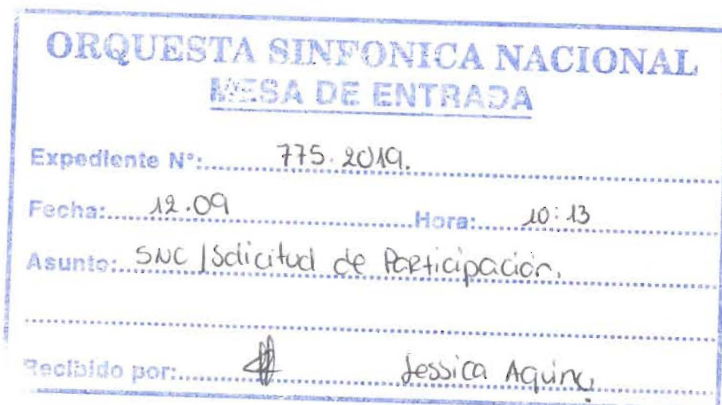 ORQUESTA SINFONICA NACIONAL
MESA DE ENTRADA
Expediente N°: 775.2019.
Fecha: 12.09 Hora: 10:13
Asunto: SNC / Solicitud de Participación.
Recibido por: Jessica Aquino